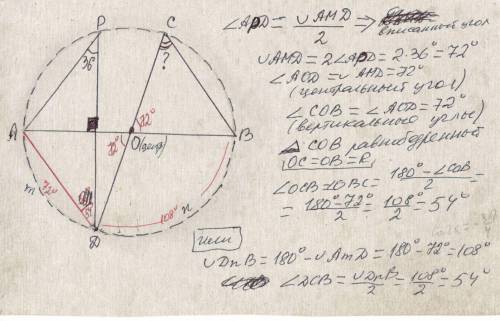 P
C
36°
?
72°
A
72°
O(центр)
B
m
72°
108°
n
D
∠APD = ∪AMD/2 ⇒
вписанный угол
∪AMD = 2∠APD = 2·36° = 72°
∠AOD = ∪AMD = 72°
(центральный угол)
∠COB = ∠AOD = 72°
(вертикальные углы)
△COB равнобедренный
OC = OB = R
∠OCB = ∠OBC = 180° - ∠COB/2 =
= 180° - 72°/2 = 108°/2 = 54°
или
∪DnB = 180° - ∪AmD = 180° - 72° = 108°
∠DCB = ∪DnB/2 = 108°/2 = 54°